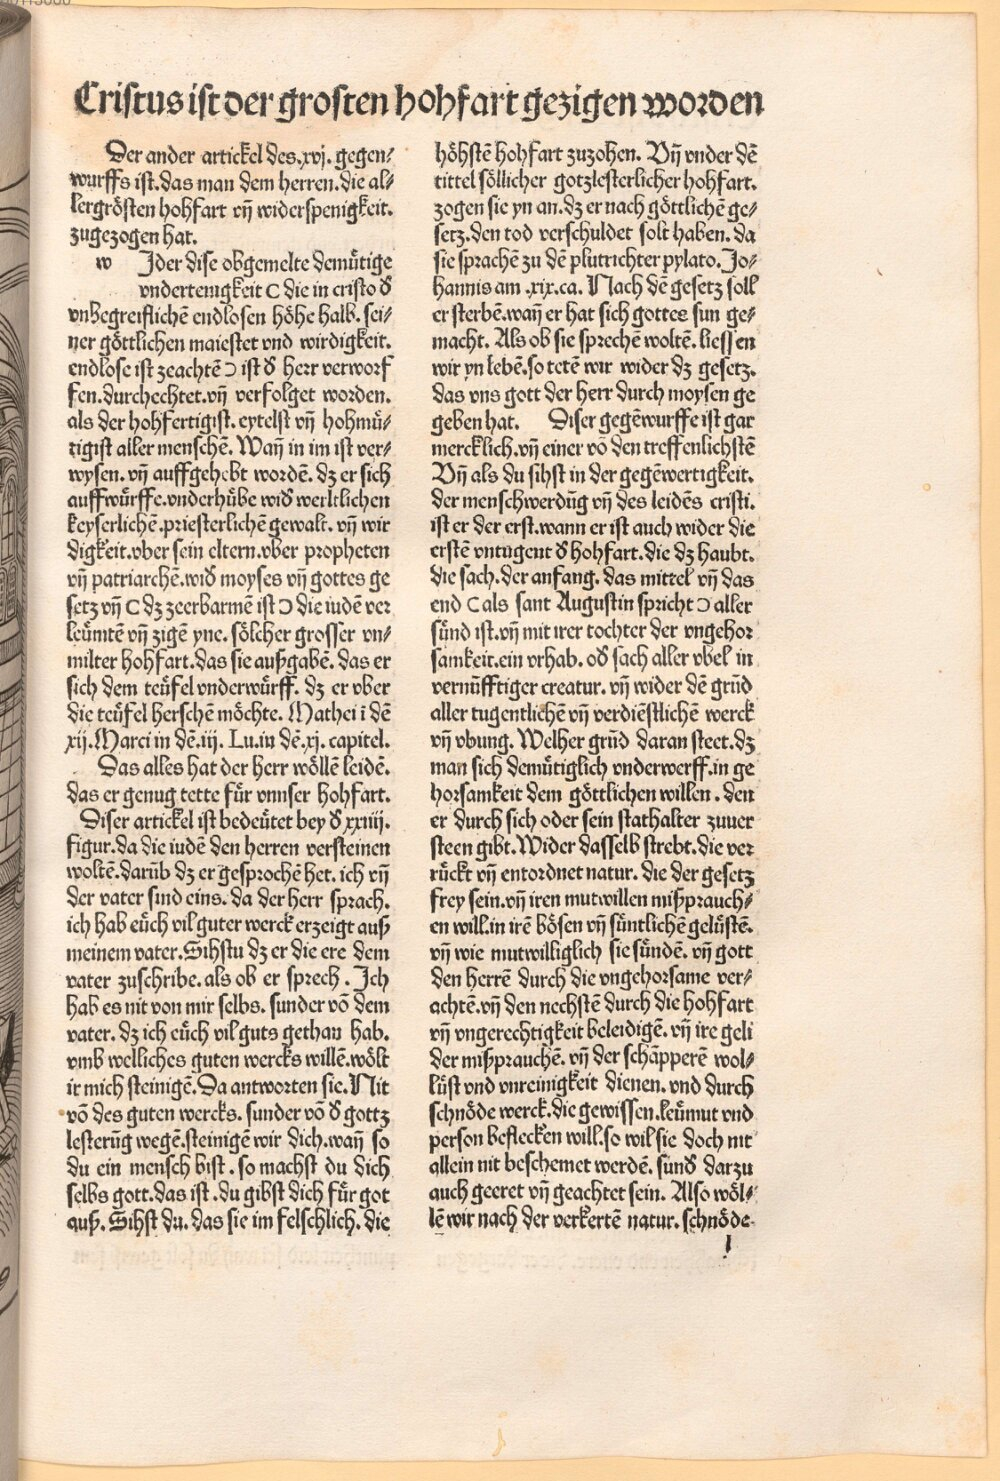 Cristus ist der grosten hohfart gezigen worden
Der ander artickel des .xvj. gegen⸗
wurffs ist. das man dem herren. die al⸗
lergrösten hohfart vñ widerspenigkeit.
zugezogen hat.
w Jder dise obgemelte demütige
vndertenigkeit ( die in cristo ď
vnbegreiflichē endlosen höhe halb. sei⸗
ner göttlichen maiestet vnd wirdigkeit.
endlose ist zeachtē ) ist ď herr verworf
fen. durchechtet. vñ verfolget worden.
als der hohfertigist. eytelst vñ hohmü⸗
tigist aller menschē. Wañ in im ist ver⸗
wysen. vñ auffgehebt wordē. dz er sich
auffwürffe. vnderhübe wiď werltlichen
keyserlichē. priesterlichē gewalt. vñ wir
digkeit. vber sein eltern. vber propheten
vñ patriarchē. wiď moyses vñ gottes ge
setz vñ ( dz zeerbarmē ist ) die iudē ver
leümtē vñ zigē yne. sölcher grosser vn⸗
milter hohfart. das sie außgabē. das er
sich dem teüfel vnderwürff. dz er vber
die teüfel herschē möchte. Mathei ī dē
xij. Marci in dē .iij. Lu. in dē .xj. capitel.
Das alles hat der herr wöllē leidē.
das er genug tette für vnnser hohfart.
Diser artickel ist bedeütet bey ď xxiiij.
figur. da die iudē den herren versteinen
woltē. darūb dz er gesprochē het. ich vñ
der vater sind eins. da der herr sprach.
ich hab eüch vil guter werck erzeigt auß
meinem vater. Sihstu dz er die ere dem
vater zuschribe. als ob er sprech. Jch
hab es nit von mir selbs. sunder vō dem
vater. dz ich eüch vil guts gethan hab.
vmb welliches guten wercks willē. wölt
ir mich steinigē. Da antworten sie. Nit
vō des guten wercks. sunder vō ď gottz
lesterūg wegē. steinigē wir dich. wañ so
du ein mensch bist. so machst du dich
selbs gott. das ist. du gibst dich für got
auß. Sihst du. das sie im felschlich. die
höhstē hohfart zuzohen. Vñ vnder dē
tittel söllicher gotzlesterlicher hohfart.
zogen sie yn an. dz er nach göttlichē ge⸗
setz. den tod verschuldet solt haben. da
sie sprachē zu dē plutrichter pylato. Jo⸗
hannis am .xix. ca. Nach dē gesetz soll
er sterbē. wañ er hat sich gottes sun ge⸗
macht. Als ob sie sprechē woltē. liessen
wir yn lebē. so tetē wir wider dz gesetz.
das vns gott der herr durch moysen ge
geben hat. Diser gegēwurffe ist gar
mercklich. vñ einer vō den treffenlichstē
Vñ als du sihst in der gegēwertigkeit.
der menschwerdūg vñ des leidēs cristi.
ist er der erst. wann er ist auch wider die
erstē vntugent ď hohfart. die dz haubt.
die sach. der anfang. das mittel vñ das
end ( als sant Augustin spricht ) aller
sünd ist. vñ mit irer tochter der vngehor
samkeit. ein vrhab. oď sach aller vbel in
vernüfftiger creatur. vñ wider dē grūd
aller tugentlichē vñ verdiēstlichē werck
vñ vbung. Welher grūd daran steet. dz
man sich demütiglich vnderwerff. in ge
horsamkeit dem göttlichen willen. den
er durch sich oder sein stathalter zuuer
steen gibt. Wider dasselb strebt. die ver
rückt vñ entordnet natur. die der gesetz
frey sein. vñ iren mutwillen mißprauch⸗
en will. in irē bösen vñ süntlichē gelüstē.
vñ wie mutwilliglich sie sündē. vñ gott
den herrē durch die vngehorsame ver⸗
achtē. vñ den nechstē durch die hohfart
vñ vngerechtigkeit beleidigē. vñ ire geli
der mißprauchē. vñ der schäpperē wol⸗
lüst vnd vnreinigkeit dienen. vnd durch
schnöde werck. die gewissen. leümut vnd
person beflecken will. so wil sie doch nit
allein nit beschemet werdē. sunď darzu
auch geeret vñ geachtet sein. Also wöl⸗
lē wir nach der verkertē natur. schnöde
l